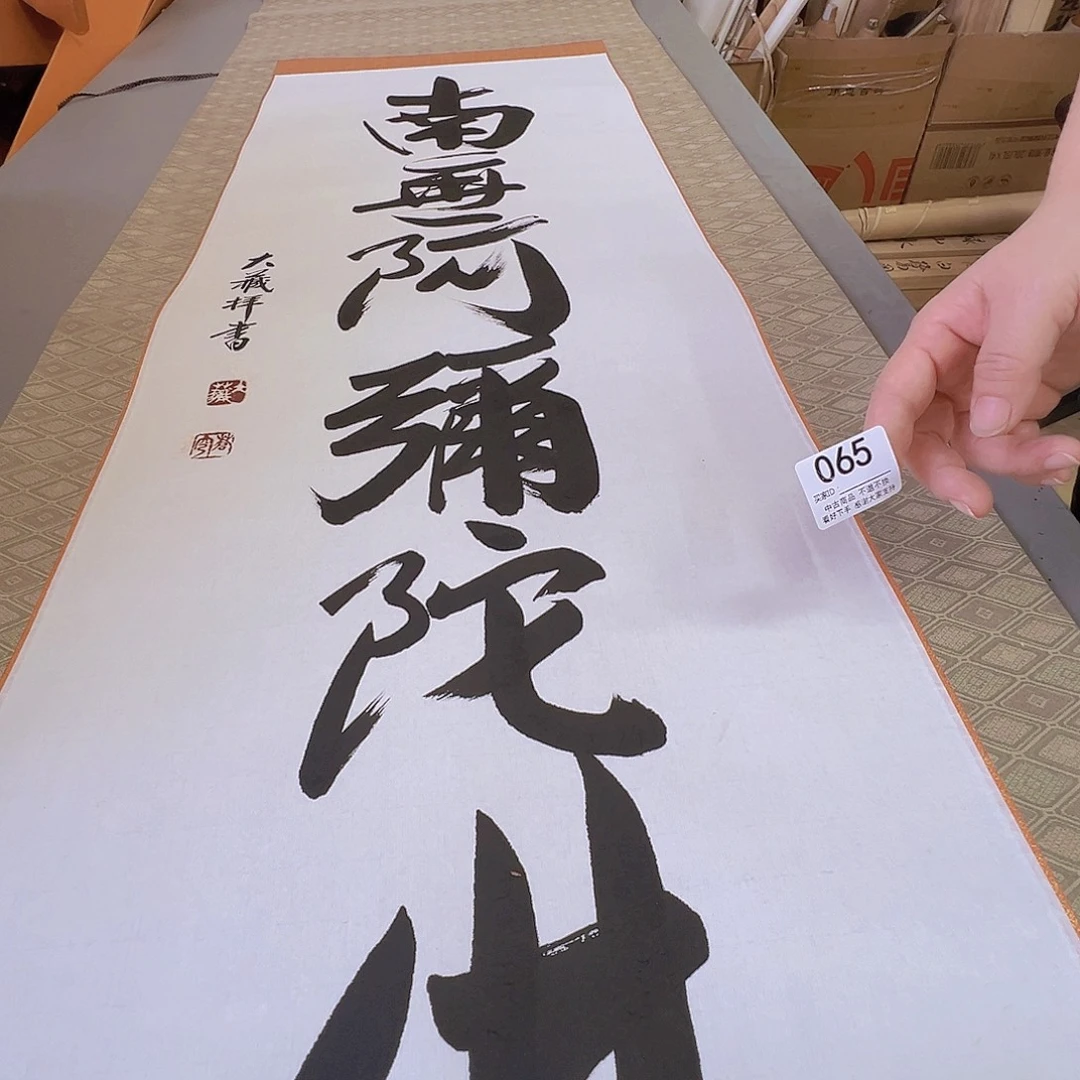 南無阿彌陀佛
大藏拝書
065
买家ID：
中古商品 不退不换
看好下手 感谢大家支持